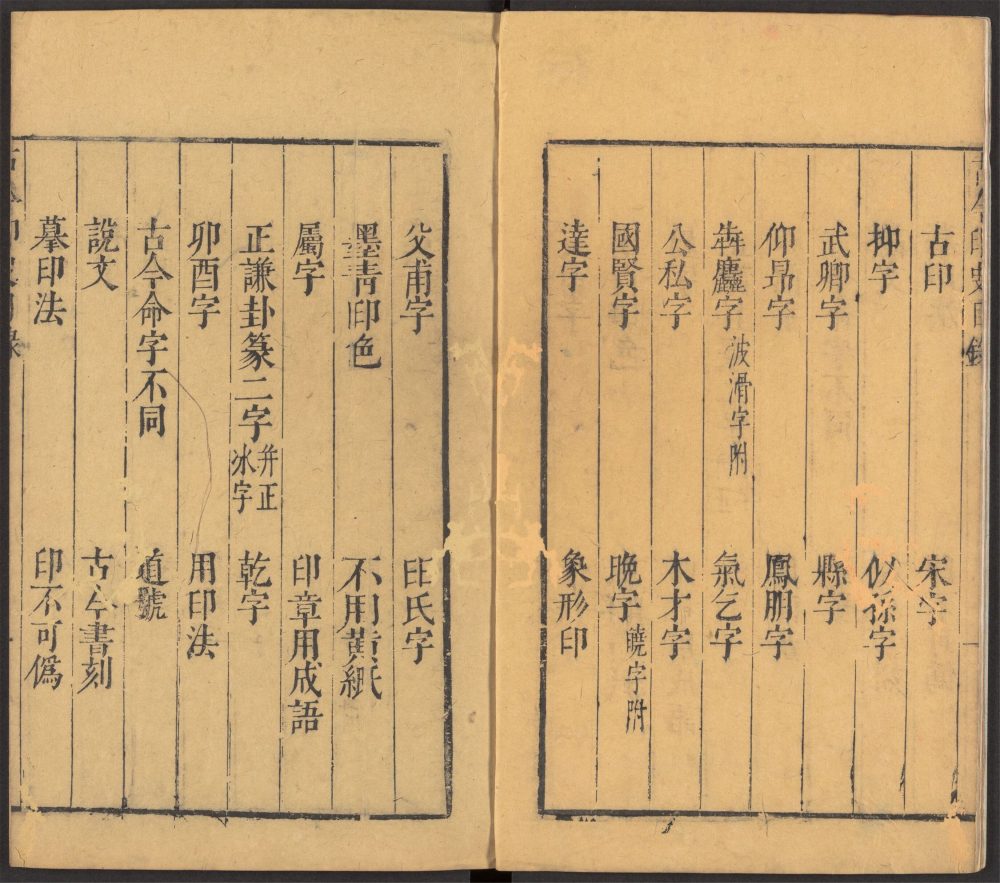 古今印史目錄
古印 宋字
抑字 似孫字
武卿字 縣字
仰昂字 鳳朋字
犇麤字 波滑字附 氣乞字
公私字 木才字
國賢字 晚字 曉字附
達字 象形印
父甫字 氏字
墨青印色 不用黃紙
屬字 印章用成語
正謙卦篆二字 并正冰字 乾字
卯酉字 用印法
古今命字不同 道號
說文 古今書刻
摹印法 印不可僞